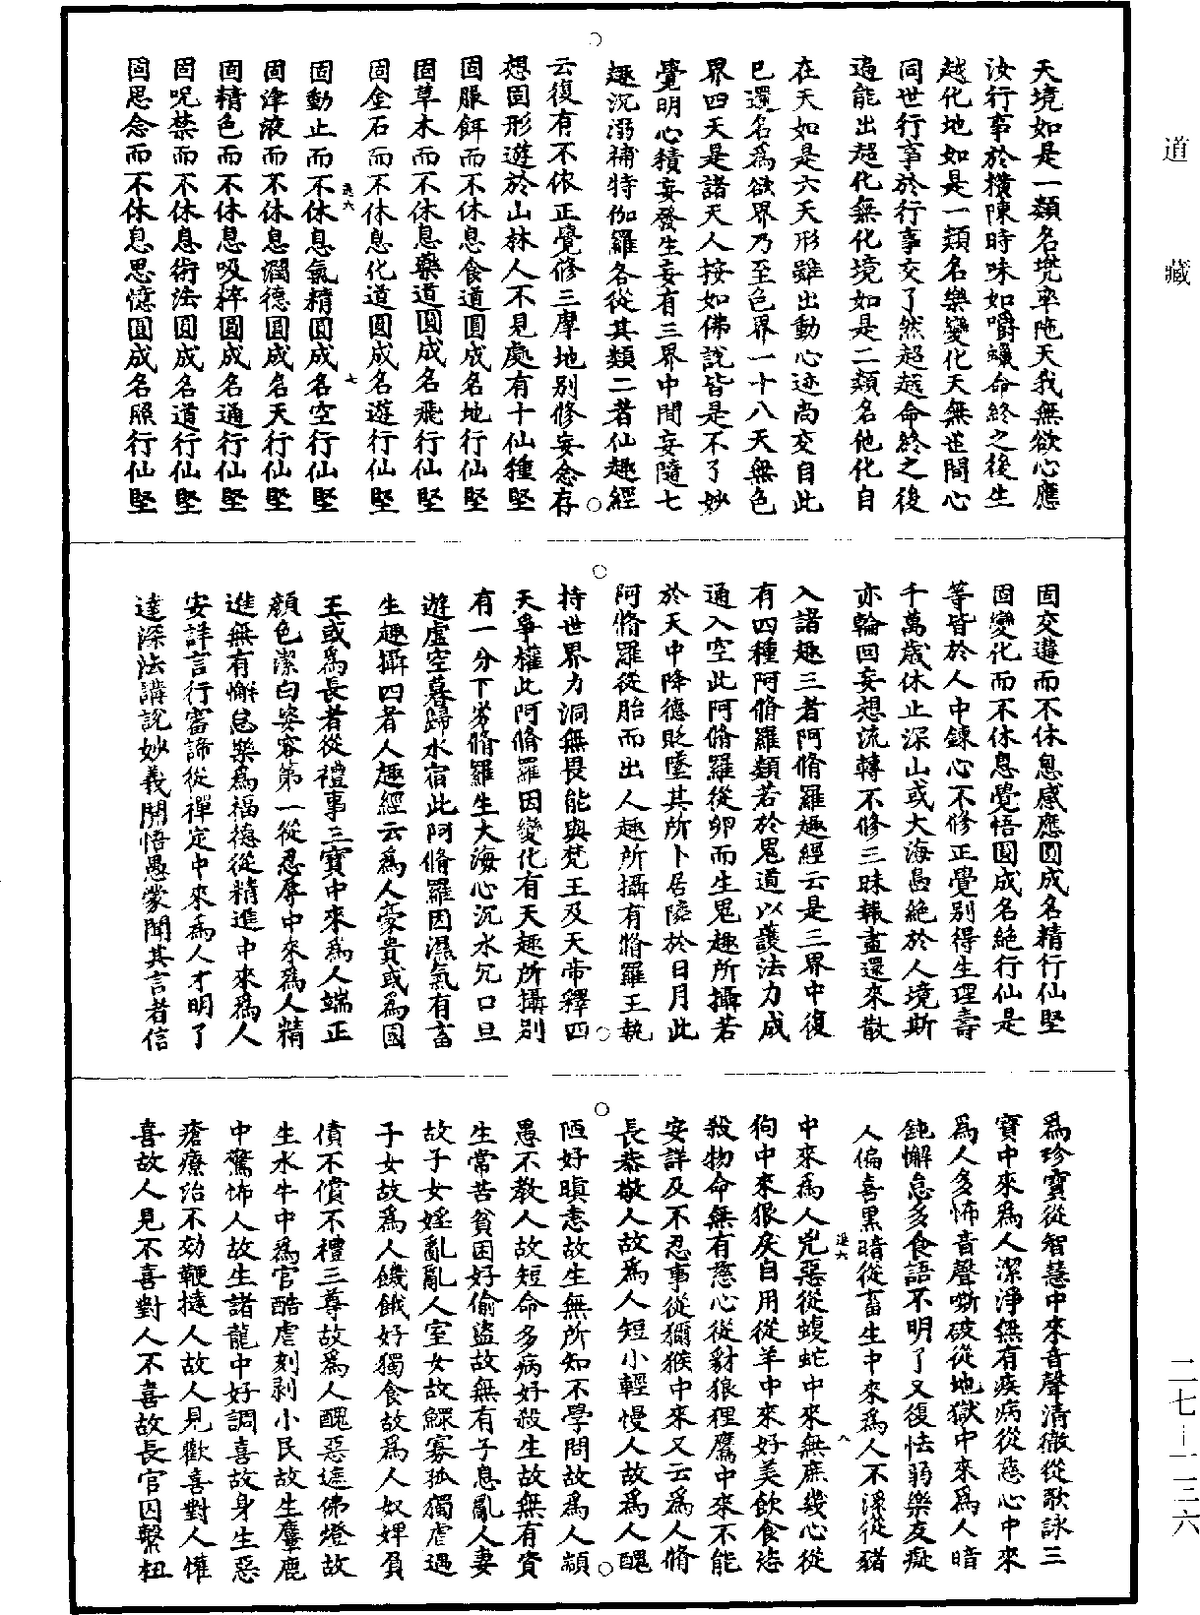 道藏
天境如是一類名兠率陁天我無欲心應
汝行事於橫陳時味如嚼蠟命終之後生
越化地如是一類名樂變化天無世間心
同世行事於行事交了然超越命終之後
遍能出超化無化境如是二類名他化自
在天如是六天形雖出動心迹尚交自此
已還名爲欲界乃至色界一十八天無色
界四天是諸天人按如佛說皆是不了妙
覺明心積妄發生妄有三界中間妄隨七
趣沉溺補特伽羅各從其類二者仙趣經
云復有不依正覺修三摩地別修妄念存
想固形遊於山林人不見處有十仙種堅
固服餌而不休息食道圓成名地行仙堅
固草木而不休息藥道圓成名飛行仙堅
固金石而不休息化道圓成名遊行仙堅
固動止而不休息氣精圓成名空行仙堅
固津液而不休息潤德圓成名天行仙堅
固精色而不休息吸粹圓成名通行仙堅
固呪禁而不休息術法圓成名道行仙堅
固思念而不休息思憶圓成名照行仙堅
固交遘而不休息感應圓成名精行仙堅
固變化而不休息覺悟圓成名絶行仙是
等皆於人中鍊心不修正覺別得生理壽
千萬歲休止深山或大海島絶於人境斯
亦輪回妄想流轉不修三昧報盡還來散
入諸趣三者阿脩羅趣經云是三界中復
有四種阿脩羅類若於鬼道以護法力成
通入空此阿脩羅從卵而生鬼趣所攝若
於天中降德貶墜其所卜居隣於日月此
阿脩羅從胎而出人趣所攝有脩羅王執
持世界力洞無畏能與梵王及天帝釋四
天爭權此阿脩羅因變化有天趣所攝別
有一分下劣脩羅生大海心沉水宂口旦
遊虛空暮歸水宿此阿脩羅因濕氣有畜
生趣攝四者人趣經云爲人豪貴或爲國
王或爲長者從禮事三寶中來爲人端正
顔色潔白姿容第一從忍辱中來爲人精
進無有懈怠樂爲福德從精進中來爲人
安詳言行審諦從禪定中來爲人才明了
達深法講說妙義開悟愚蒙聞其言者信
爲珍寶從智慧中來音聲清徹從歌詠三
寶中來爲人潔淨無有疾病從慈心中來
爲人多怖音聲嘶破從地獄中來爲人暗
鈍懈怠多食語不明了又復怯弱樂友癡
人偏喜黑暗從畜生中來爲人不淨從豬
中來爲人兇惡從蝮蛇中來無庶幾心從
狗中來狠戾自用從羊中來好美飲食恣
殺物命無有慈心從豺狼狸鷹中來不能
安詳及不忍事從獼猴中來又云爲人脩
長恭敬人故爲人短小輕慢人故爲人醜
陋好瞋恚故生無所知不學問故爲人顓
愚不教人故短命多病好殺生故無有資
生常苦貧困好偷盜故無有子息亂人妻
故子女婬亂亂人室女故鰥寡孤獨虐遇
子女故爲人饑餓好獨食故爲人奴婢負
債不償不禮三尊故爲人醜惡遮佛燈故
生水牛中爲官酷虐刻剥小民故生麞鹿
中驚怖人故生諸龍中好調喜故身生惡
瘡療治不効鞭撻人故人見歡喜對人懽
喜故人見不喜對人不喜故長官囚繫杻
二七—一三六